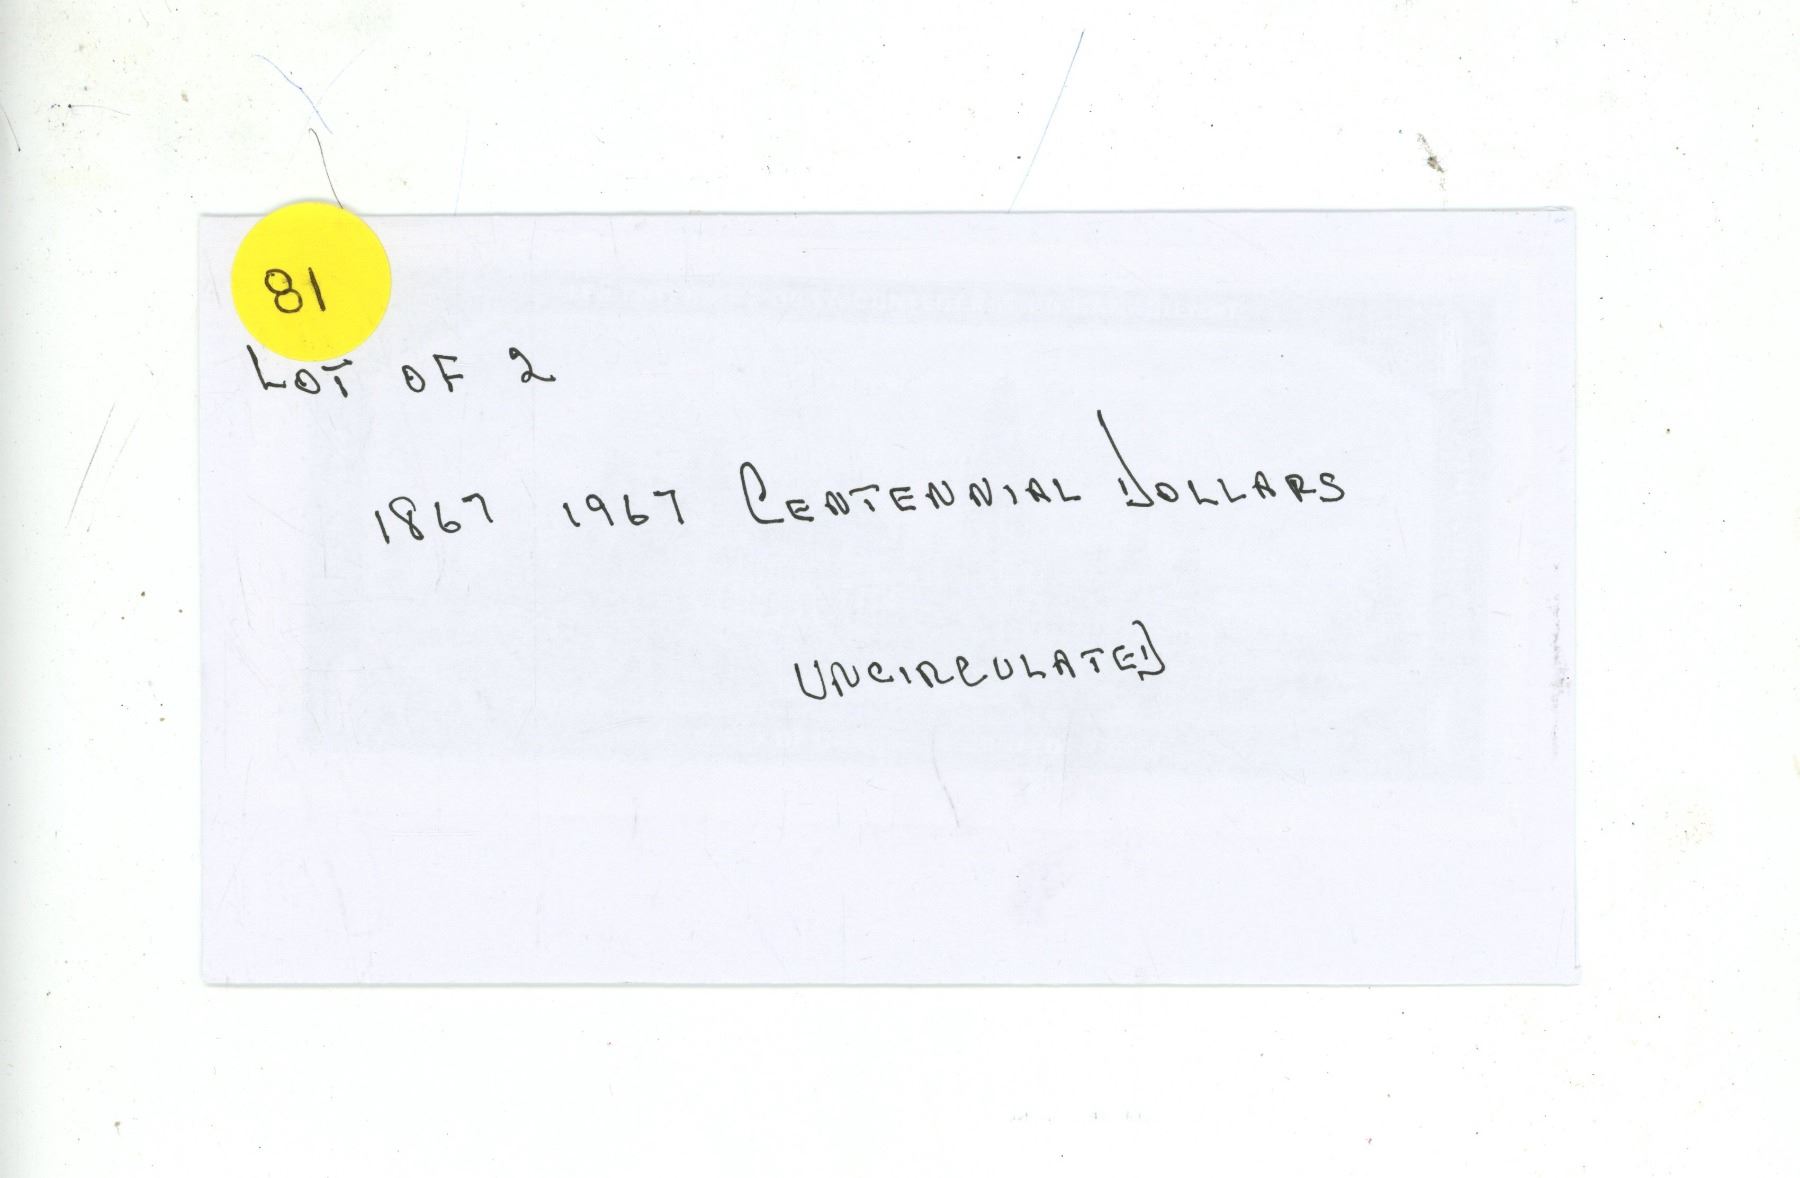 81
LOT OF 2
1867 1967 CENTENNIAL DOLLARS
UNCIRCULATED